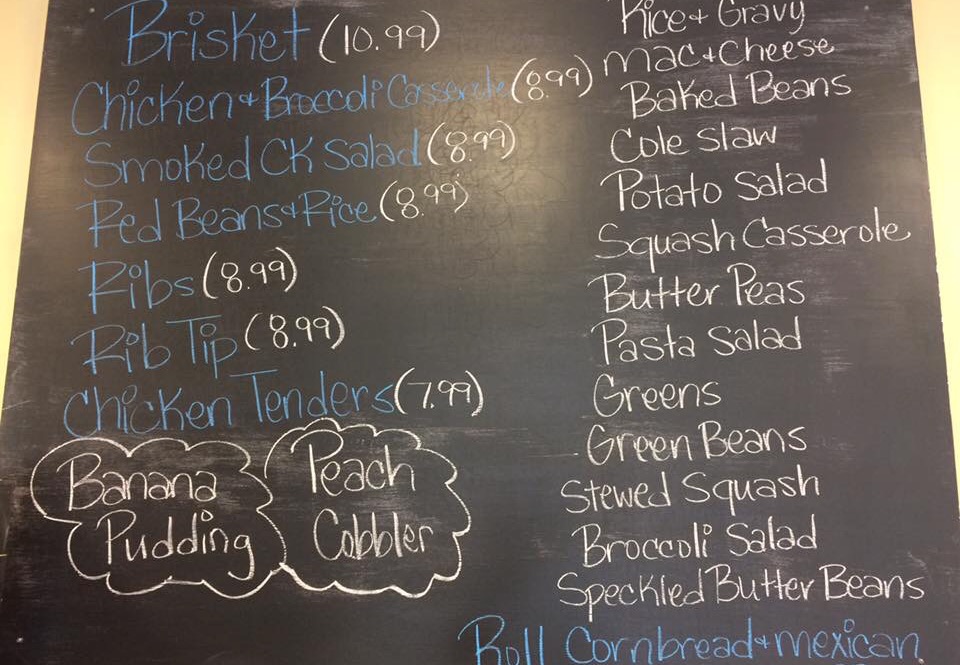 Brisket (10.99)
Chicken & Broccoli Casserole (8.99)
Smoked CK Salad (8.99)
Red Beans & Rice (8.99)
Ribs (8.99)
Rib Tip (8.99)
Chicken Tenders (7.99)
Banana
Pudding
Peach
Cobbler
Rice & Gravy
Mac & Cheese
Baked Beans
Cole Slaw
Potato Salad
Squash Casserole
Butter Peas
Pasta Salad
Greens
Green Beans
Stewed Squash
Broccoli Salad
Speckled Butter Beans
Roll Cornbread & mexican